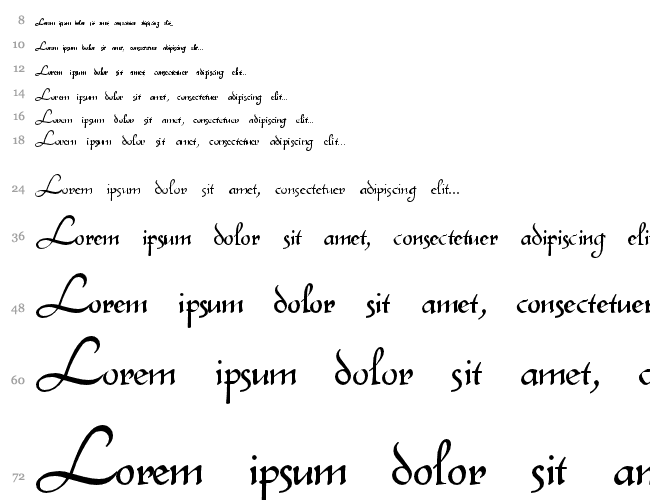 8 Lorem ipsum dolor sit amet consectetuer adipiscing elit...
10 Lorem ipsum dolor sit amet, consectetuer adipiscing elit...
12 Lorem ipsum dolor sit amet consectetuer adipiscing elit...
14 Lorem ipsum dolor sit amet, consectetuer adipiscing elit...
16 Lorem ipsum dolor sit amet, consectetuer adipiscing elit...
18 Lorem ipsum dolor sit amet, consectetuer adipiscing elit...
24 Lorem ipsum dolor sit amet, consectetuer adipiscing elit...
36 Lorem ipsum dolor sit amet, consectetuer adipiscing eli
48 Lorem ipsum dolor sit amet, consectetuer
60 Lorem ipsum dolor sit amet, c
72 Lorem ipsum dolor sit am